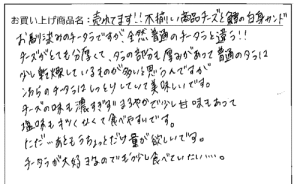 お買い上げ商品名：売れてます!!不揃い商品チーズと鱈の白身サンド
お馴染みのチータラですが全然普通のチータラと違う!!
チーズがとても分厚くて、タラの部分も厚みがあって普通のタラは
少し乾燥しているものが多いと思うんですが
こちらのチータラはしっとりしていて美味しいです。
チーズの味も濃すぎずまろやかで少し甘味もあって
塩味もキツくなくて食べやすいです。
ただ…あともうちょっとだけ量が欲しいです。
チータラが大好きなのでもう少し食べていたい…。